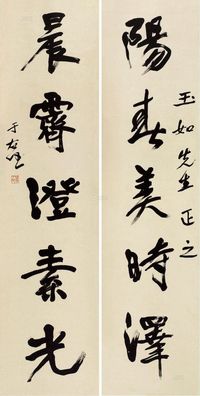 玉如先生正之
陽春美時澤
晨霽澄素光
于右任